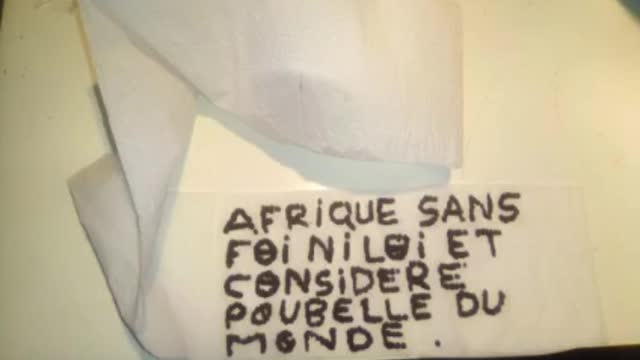 AFRIQUE SANS
FOI NI LOI ET
CONSIDERE
POUBELLE DU
MONDE .